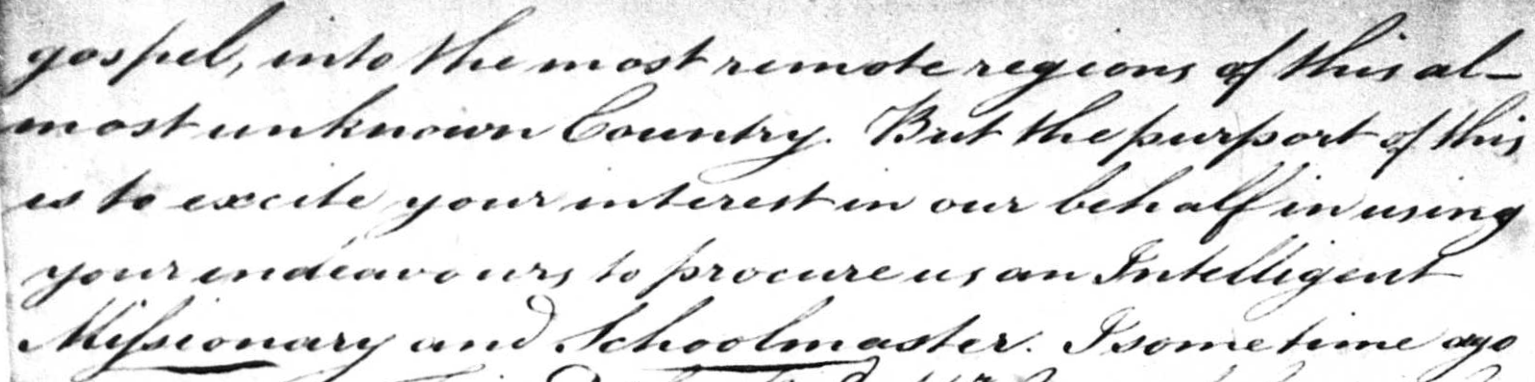 gospel, into the most remote regions of this al-
most unknown Country. But the purport of this
is to excite your interest in our behalf in using
your endeavours to procure us an Intelligent
Missionary and Schoolmaster. I sometime ago